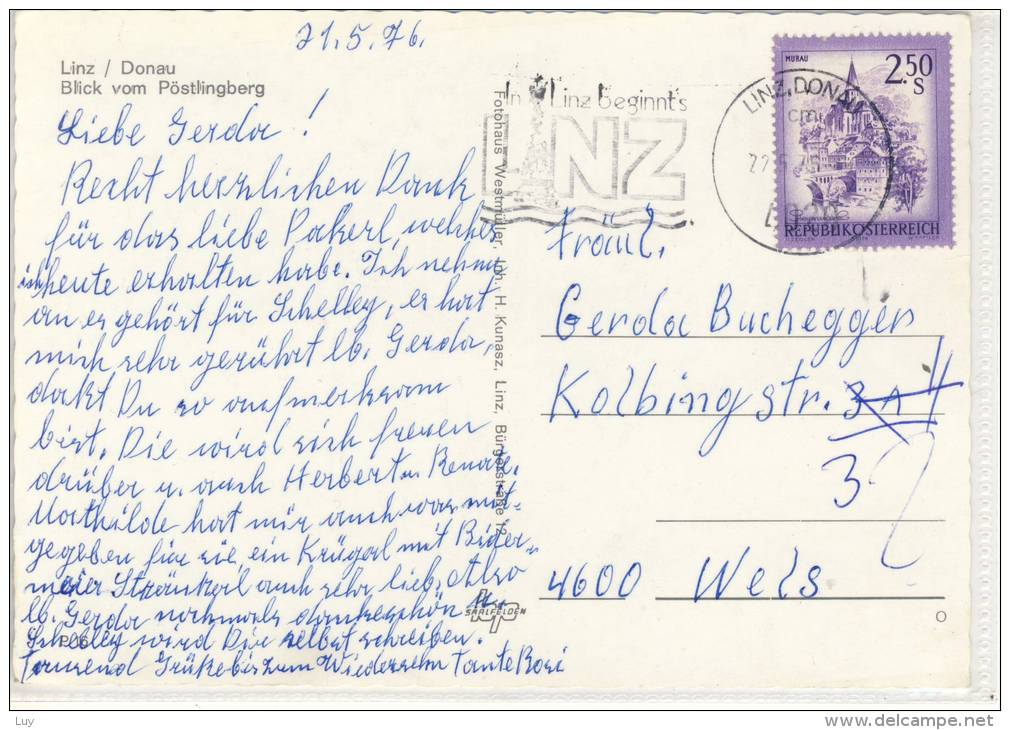 21.5.76.
Linz / Donau
Blick vom Pöstlingberg
Liebe Gerda!
Recht herzlichen Dank
für das liebe Pakerl, welches
ich heute erhalten habe. Ich nehme
an er gehört für Schelley, es hat
mich sehr gerührt lb. Gerda,
daßt Du so aufmerksam
bist. Die wird sich freuen
drüber u. auch Herbert u. Renate.
Mathilde hat mir auch was mit-
gegeben für sie, ein Krügerl mit Bider-
meier Sträukerl auch sehr lieb. Also
lb. Gerda nochmals dankeschön
Schelley wird Dir selbst schreiben.
Tausend Grüße bis zum Wiedersehn Tante Rosi
P 06
Fotohaus Westmüller, Inh. H. Kunasz, Linz, Bürgerstraße 12
SAALFELDEN
In Linz beginnt's
LINZ
LINZ, DONAU
4020
MURAU
2.50
S
REPUBLIK ÖSTERREICH
Fräul.
Gerda Buchegger
Kolbingstr.
3
4600 Wels
Luy
www.delcampe.net